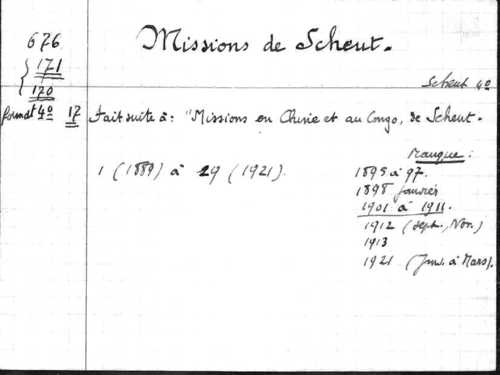 676
Missions de Scheut.
171
170
Scheut 4º
format 4º 17
Fait suite à : "Missions en Chine et au Congo, de Scheut.
Manque :
1 (1889) à 29 (1921).
1895 à 97.
1898 janvier
1901 à 1911.
1912 (Sept., Nov.)
1913
1921 (Janv. à Mars).